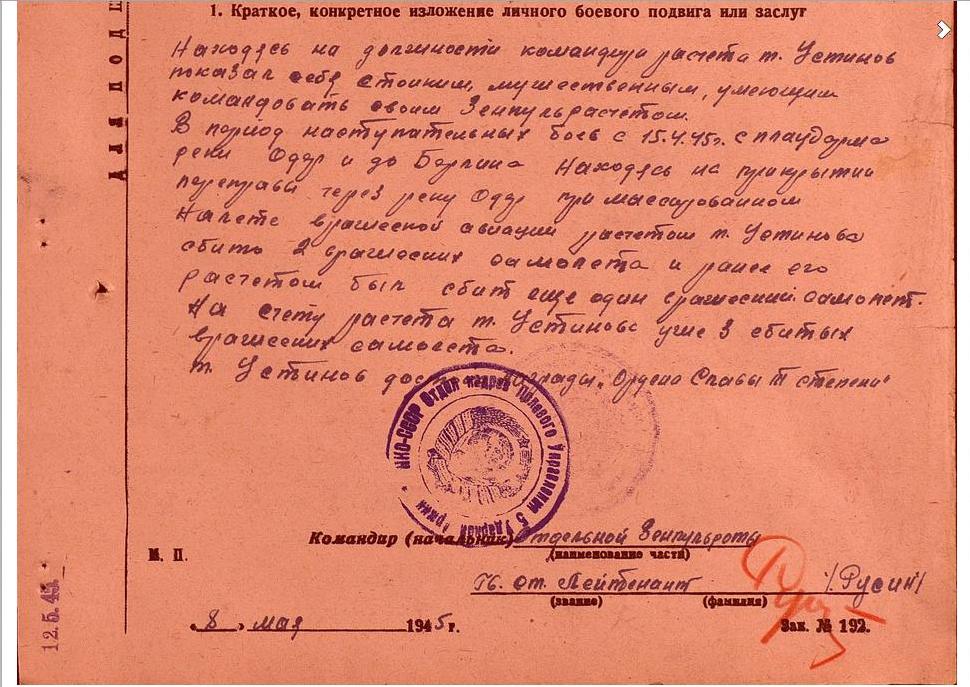 1. Краткое, конкретное изложение личного боевого подвига или заслуг
Находясь на должности командира расчета т. Устинов
показал себя стойким, мужественным, умеющим
командовать своим Зенпульрасчетом.
В период наступательных боев с 15.4.45г. с плацдарма
реки Одер и до Берлина Находясь на прикрытии
переправы через реку Одер при массированном
Налете вражеской авиации расчетом т. Устинова
сбито 2 вражеских самолета и ранее его
расчетом был сбит еще один вражеский самолет.
На счету расчета т. Устинова уже 3 сбитых
вражеских самолета.
т. Устинов дос награды "Ордена Славы III степени"
НКО-СССР Отдел кадров Полевого Управления 5 Ударной Армии
Командир (начальник) Отдельной Зенпульроты
(наименование части)
М. П.
Гв. ст. Лейтенант /Русин/
(звание) (фамилия)
„ 8 „ мая 1945г.
Зак. № 192.
12.5.45